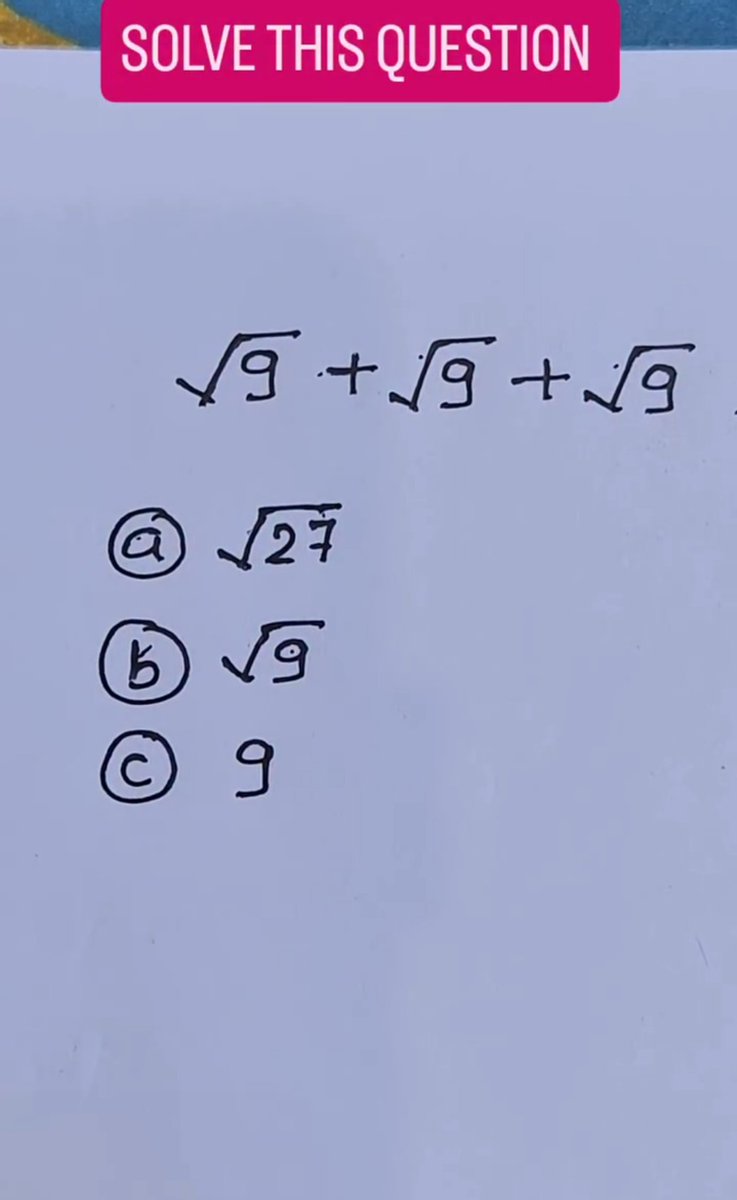 SOLVE THIS QUESTION
√9 + √9 + √9
ⓐ √27
ⓑ √9
ⓒ 9